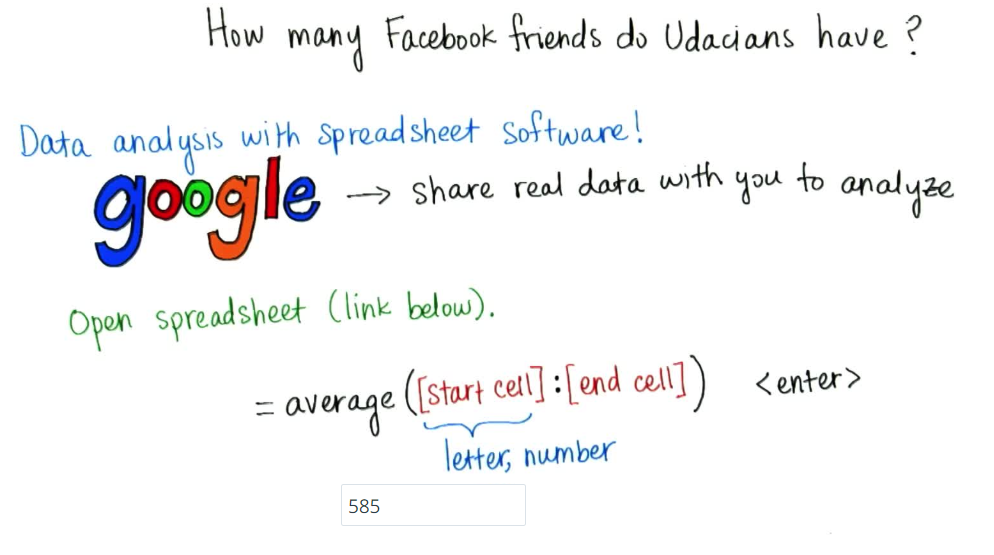 How many Facebook friends do Udacians have?
Data analysis with spreadsheet software!
google → share real data with you to analyze
Open spreadsheet (link below).
= average ([start cell]:[end cell]) <enter>
letter, number
585